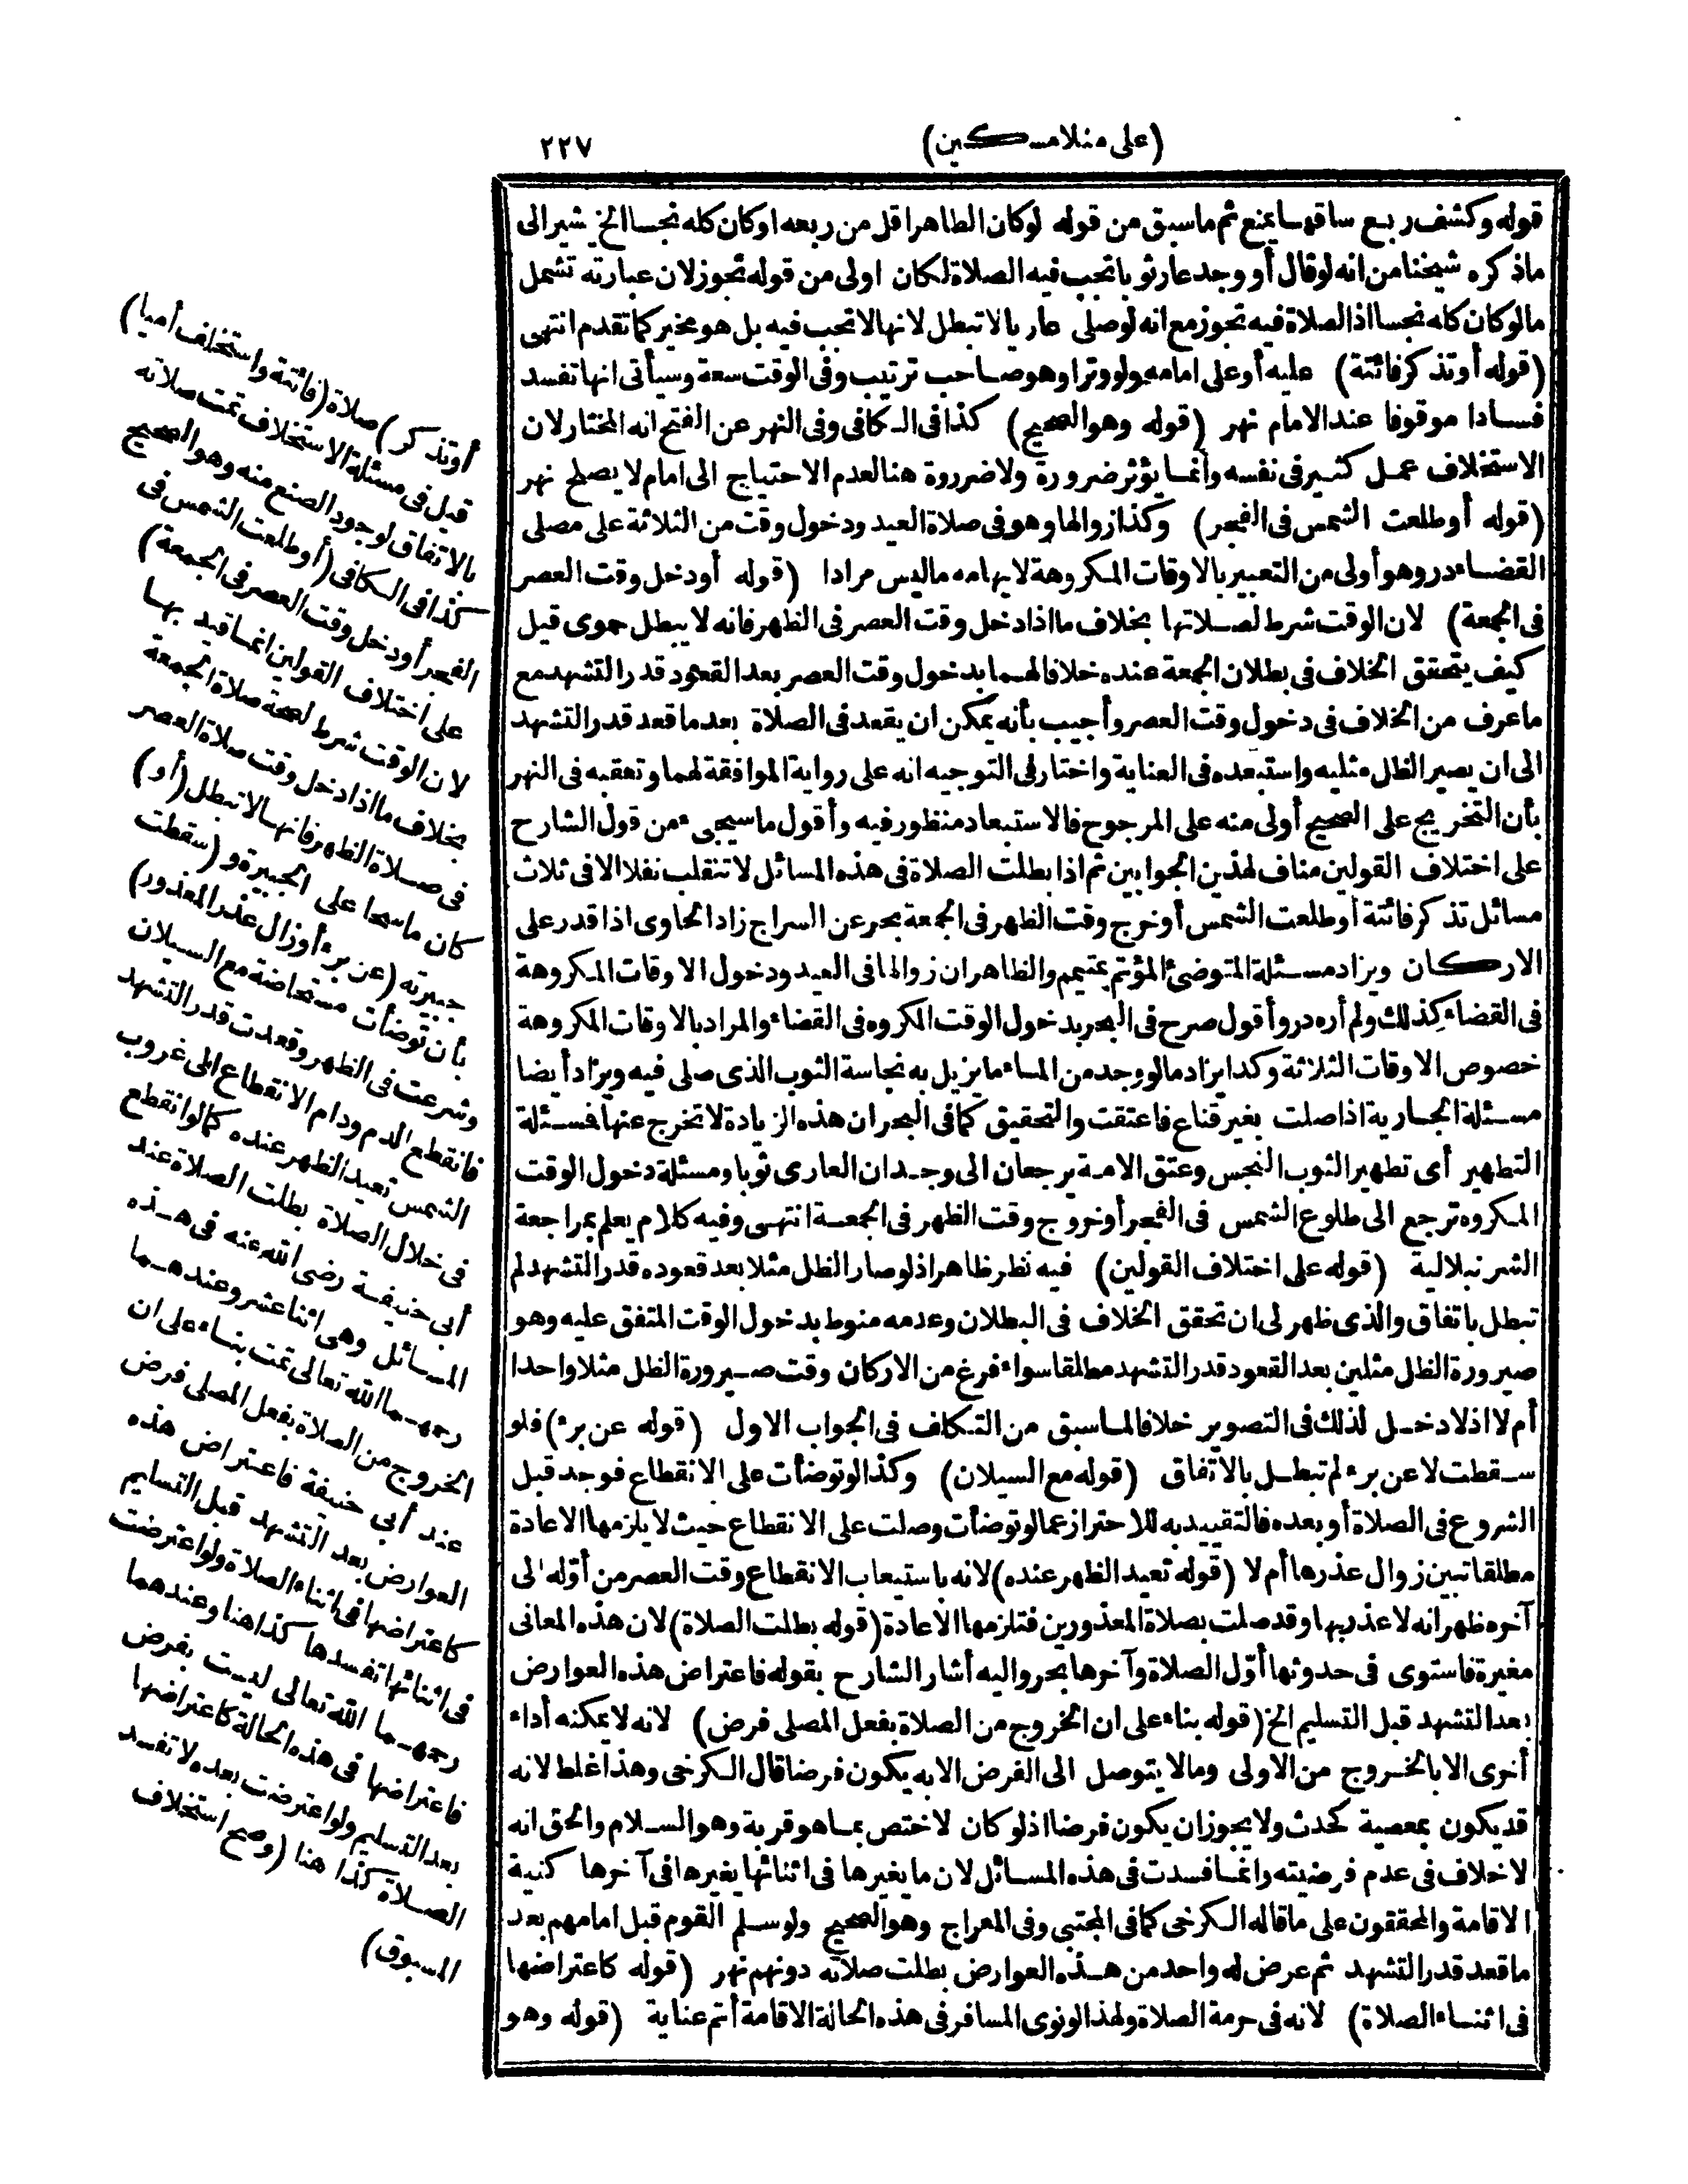 (على منلا مسكين) ٢٢٧
قوله وكشف ربع ساقها يمنع ثم ما سبق من قوله لو كان الطاهر اقل من ربعه او كان كله نجسا الخ يشير الى
ما ذكره شيخنا من انه لو قال أو وجد عار ثوبا تجب فيه الصلاة لكان اولى من قوله تجوز لان عبارته تشمل
ما لو كان كله نجسا اذ الصلاة فيه تجوز مع انه لو صلى عاريا لا تبطل لانها لا تجب فيه بل هو مخير كما تقدم انتهى
(قوله أو تذكر فائتة) عليه أو على امامه ولو وترا وهو صاحب ترتيب وفى الوقت سعة وسيأتى انها تفسد
فسادا موقوفا عند الامام نهر (قوله وهو الصحيح) كذا فى الكافى وفى النهر عن الفتح انه المختار لان
الاستخلاف عمل كثير فى نفسه وانما يؤثر ضرورة ولا ضرورة هنا لعدم الاحتياج الى امام لا يصلح نهر
(قوله أو طلعت الشمس فى الفجر) وكذا زوالها وهو فى صلاة العيد ودخول وقت من الثلاثة على مصلى
القضاء در وهو أولى من التعبير بالاوقات المكروهة لايهامه ما ليس مرادا (قوله أو دخل وقت العصر
فى الجمعة) لان الوقت شرط لصلاتها بخلاف ما اذا دخل وقت العصر فى الظهر فانه لا يبطل حموى قيل
كيف يتحقق الخلاف فى بطلان الجمعة عنده خلافا لهما بدخول وقت العصر بعد القعود قدر التشهد مع
ما عرف من الخلاف فى دخول وقت العصر وأجيب بأنه يمكن ان يقعد فى الصلاة بعد ما قعد قدر التشهد
الى ان يصير الظل مثليه واستبعده فى العناية واختار فى التوجيه انه على رواية الموافقة لهما وتعقبه فى النهر
بأن التخريج على الصحيح أولى منه على المرجوح فالاستبعاد منظور فيه وأقول ما سيجىء من قول الشارح
على اختلاف القولين مناف لهذين الجوابين ثم اذا بطلت الصلاة فى هذه المسائل لا تنقلب نفلا الا فى ثلاث
مسائل تذكر فائتة أو طلعت الشمس أو خرج وقت الظهر فى الجمعة بحر عن السراج زاد الحاوى اذا قدر على
الاركان ويزاد مسئلة المتوضئ المؤتم بمتيمم والظاهر ان زوالها فى العيد ودخول الاوقات المكروهة
فى القضاء كذلك ولم أره در وأقول صرح فى البحر بدخول الوقت المكروه فى القضاء والمراد بالاوقات المكروهة
خصوص الاوقات الثلاثة وكذا يزاد ما لو وجد من الماء ما يزيل به نجاسة الثوب الذى صلى فيه ويزاد أيضا
مسئلة الجارية اذا صلت بغير قناع فاعتقت والتحقيق كما فى البحر ان هذه الزيادة لا تخرج عنها فسئلة
التطهير أى تطهير الثوب النجس وعتق الامة يرجعان الى وجدان العارى ثوبا ومسئلة دخول الوقت
المكروه ترجع الى طلوع الشمس فى الفجر أو خروج وقت الظهر فى الجمعة انتهى وفيه كلام يعلم بمراجعة
الشرنبلالية (قوله على اختلاف القولين) فيه نظر ظاهر اذ لو صار الظل مثلا بعد قعوده قدر التشهد لم
تبطل باتفاق والذى ظهر لى ان تحقق الخلاف فى البطلان وعدمه منوط بدخول الوقت المتفق عليه وهو
صيرورة الظل مثلين بعد القعود قدر التشهد مطلقا سواء فرغ من الاركان وقت صيرورة الظل مثلا واحدا
أم لا اذ لا دخل لذلك فى التصوير خلافا لما سبق من التكلف فى الجواب الاول (قوله عن برء) فلو
سقطت لا عن برء لم تبطل بالاتفاق (قوله مع السيلان) وكذا لو توضأت على الانقطاع فوجد قبل
الشروع فى الصلاة أو بعده فالتقييد به للاحتراز عما لو توضأت وصلت على الانقطاع حيث لا يلزمها الاعادة
مطلقا تبين زوال عذرها أم لا (قوله تعيد الظهر عنده) لانه باستيعاب الانقطاع وقت العصر من أوّله الى
آخره ظهر انه لا عذر بها وقد صلت بصلاة المعذورين فتلزمها الاعادة (قوله بطلت الصلاة) لان هذه المعانى
مغيرة فاستوى فى حدوثها أوّل الصلاة وآخرها بحر واليه أشار الشارح بقوله فاعتراض هذه العوارض
بعد التشهد قبل التسليم الخ (قوله بناء على ان الخروج من الصلاة بفعل المصلى فرض) لانه لا يمكنه أداء
أخرى الا بالخروج من الاولى وما لا يتوصل الى الفرض الا به يكون فرضا قال الكرخى وهذا غلط لانه
قد يكون بمعصية كحدث ولا يجوز ان يكون فرضا اذ لو كان لاختص بما هو قربة وهو السلام والحق انه
لا خلاف فى عدم فرضيته وانما فسدت فى هذه المسائل لان ما يغيرها فى اثنائها يغيرها فى آخرها كنية
الاقامة والمحققون على ما قاله الكرخى كما فى المجتبى وفى المعراج وهو الصحيح ولو سلم القوم قبل امامهم بعد
ما قعد قدر التشهد ثم عرض له واحد من هذه العوارض بطلت صلاته دونهم نهر (قوله كاعتراضها
فى اثناء الصلاة) لانه فى حرمة الصلاة ولهذا لو نوى المسافر فى هذه الحالة الاقامة أتم عناية (قوله وهو
أو تذكر) صلاة (فائتة واستخلف أميا)
قيل فى مسئلة الاستخلاف تمت صلاته
بالاتفاق لوجود الصنع منه وهو الصحيح
كذا فى الكافى (أو طلعت الشمس فى
الفجر أو دخل وقت العصر فى الجمعة)
على اختلاف القولين انما قيد بها
لان الوقت شرط لصحة صلاة الجمعة
بخلاف ما اذا دخل وقت صلاة العصر
فى صلاة الظهر فانها لا تبطل (أو)
كان ماسحا على الجبيرة و (سقطت
جبيرته (عن برء أو زال عذر المعذور)
بأن توضأت مستحاضة مع السيلان
وشرعت فى الظهر وقعدت قدر التشهد
فانقطع الدم ودام الانقطاع الى غروب
الشمس تعيد الظهر عنده كما لو انقطع
فى خلال الصلاة بطلت الصلاة عند
أبى حنيفة رضى الله عنه فى هذه
المسائل وهى اثنا عشر وعندهما
رحمهما الله تعالى تمت بناء على ان
الخروج من الصلاة بفعل المصلى فرض
عند أبى حنيفة فاعتراض هذه
العوارض بعد التشهد قبل التسليم
كاعتراضها فى اثناء الصلاة ولو اعترضت
فى اثنائها تفسدها كذا هنا وعندهما
رحمهما الله تعالى ليست بفرض
فاعتراضها فى هذه الحالة كاعتراضها
بعد التسليم ولو اعترضت بعده لا تفسد
الصلاة كذا هنا (وصح استخلاف
المسبوق)